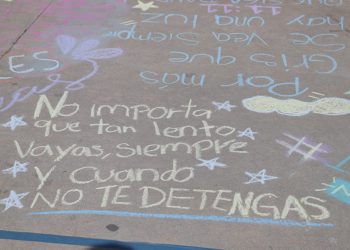 No importa
que tan lento
Vayas, siempre
y cuando
NO TE DETENGAS
Por más
Gris que
se vea siempre
hay una luz
11:11
es